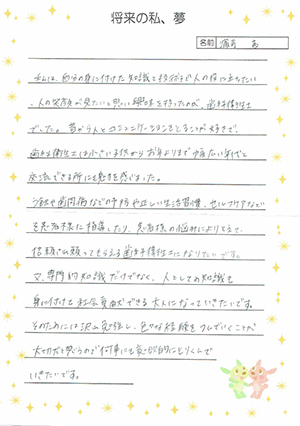 将来の私、夢
名前
私は、自分の身に付けた知識と技術で人の役に立ちたい
、人の笑顔が見たいと思い興味を持ったのが、歯科衛生士
でした。昔から人とコミュニケーションをとることが好きで、
歯科衛生士は小さい子供からお年よりまで幅広い年代と
交流できる所にも魅力を感じました。
う蝕や歯周病などの予防や正しい生活習慣、セルフケアなど
を患者様に指導したり、患者様の悩みによりそえて、
信頼や頼ってもらえる歯科衛生士になりたいです。
又、専門的知識だけでなく、人としての知識も
身に付けて社会貢献できる大人になっていきたいです。
そのためには沢山勉強し、色々な経験をつんでいくことが
大切だと思うので何事にも意欲的にとりくんで
いきたいです。